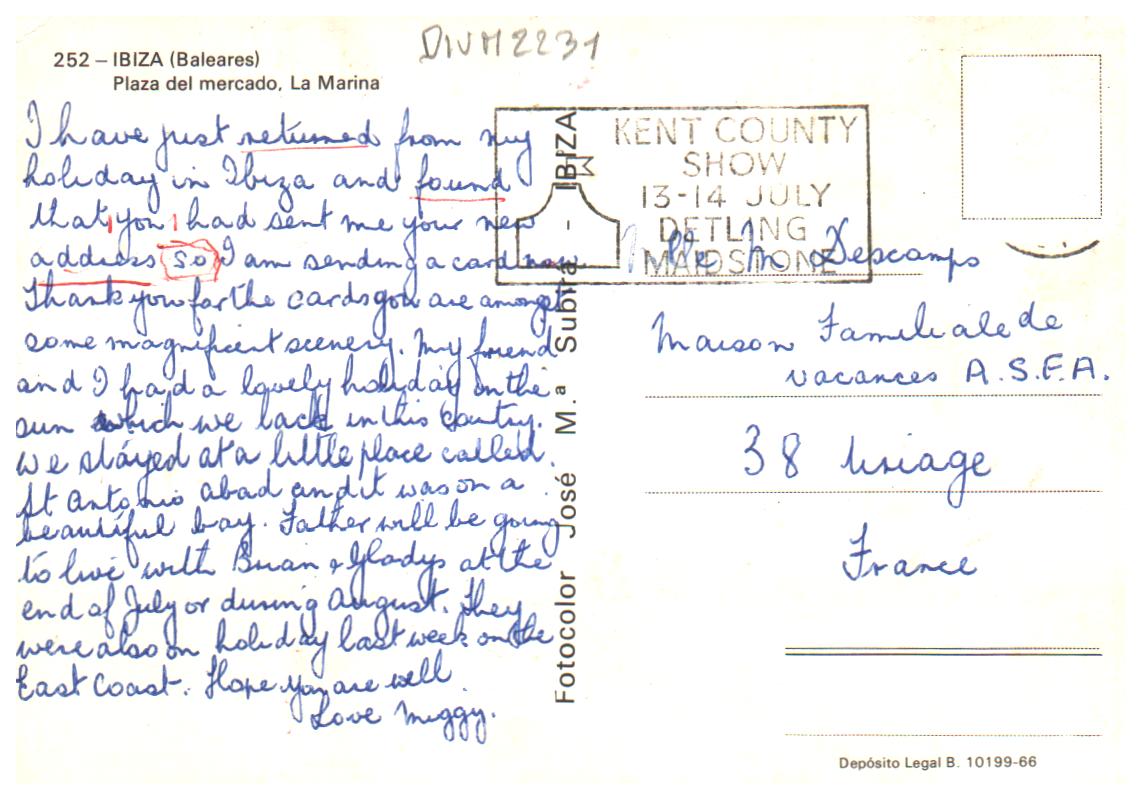 DIVM2231
252 – IBIZA (Baleares)
Plaza del mercado, La Marina
I have just returned from my
holiday in Ibiza and found
that you had sent me your new
address so I am sending a card now
Thank you for the cards you are amongst
some magnificent scenery. My friend
and I had a lovely holiday in the
sun which we lack in this country.
We stayed at a little place called
St Antonio abad and it was on a
beautiful bay. Father will be going
to live with Brian & Gladys at the
end of July or during August. They
were also on holiday last week on the
East Coast. Hope you are well
Love Miggy.
Fotocolor José M.ª Subirá - IBIZA
KENT COUNTY
SHOW
13-14 JULY
DETLING
MAIDSTONE
Descamps
Maison Familiale de
vacances A.S.F.A.
38 Uriage
France
Depósito Legal B. 10199-66